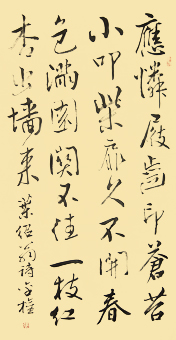 應憐屐齒印蒼苔
小叩柴扉久不開春
色滿園關不住一枝紅
杏出墻來 葉紹翁詩